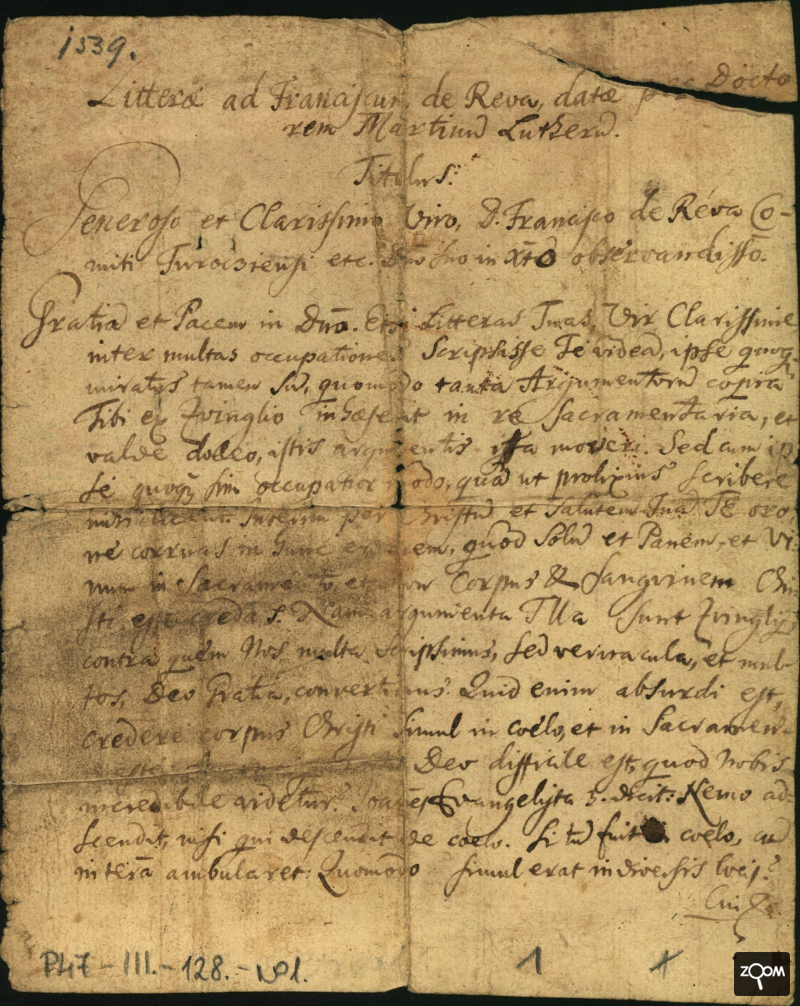 1539.
Litteræ ad Franciscum de Reva, datæ per Docto
rem Martinū Lutherū.
Titulus:
Generoso et Clarissimo Viro, D. Francisco de Réva Co-
miti Turocziensi etc. Dno suo in Xto observandisso.
Gratiā et Pacem in Dnō. Etsi Litteras Tuas, Vir Clarissime
inter multas occupationes scripsisse Te videā, ipse quoq
miratus tamen sū, quomodo tanta Argumentorū copia
Tibi ex Zvinglio inhæserit in re Sacramentaria, et
valde doleo, istis argumentis ita moveri. Sed cum ip
se quoq sim occupatior modo, quā ut prolixius scribere
mihi liceat. Interim per Christū et salutem Tuā Te oro
ne corruas in hunc errorem, quod solū et Panem et Vi-
num in Sacramento et non Corpus & Sangvinem Chri
sti esse credas. Nam argumenta Illa sunt Zvinglij
contra quem Nos multa scripsimus, sed vera cula, et mul
tos, Deo Gratiā, convertimus. Quid enim absurdi est,
credere corpus Christi simul in coelo, et in Sacramen-
Deo difficile est, quod Nobis
incredibile videtur. Joanes Evangelista 3. dicit: Nemo ad-
scendit, nisi qui descendit de coelo. Si tū fuit coelo, cū
in terā ambularet: Quomodo simul erat in diversis locis?
P47-III.-128.-No1.
1
ZOOM